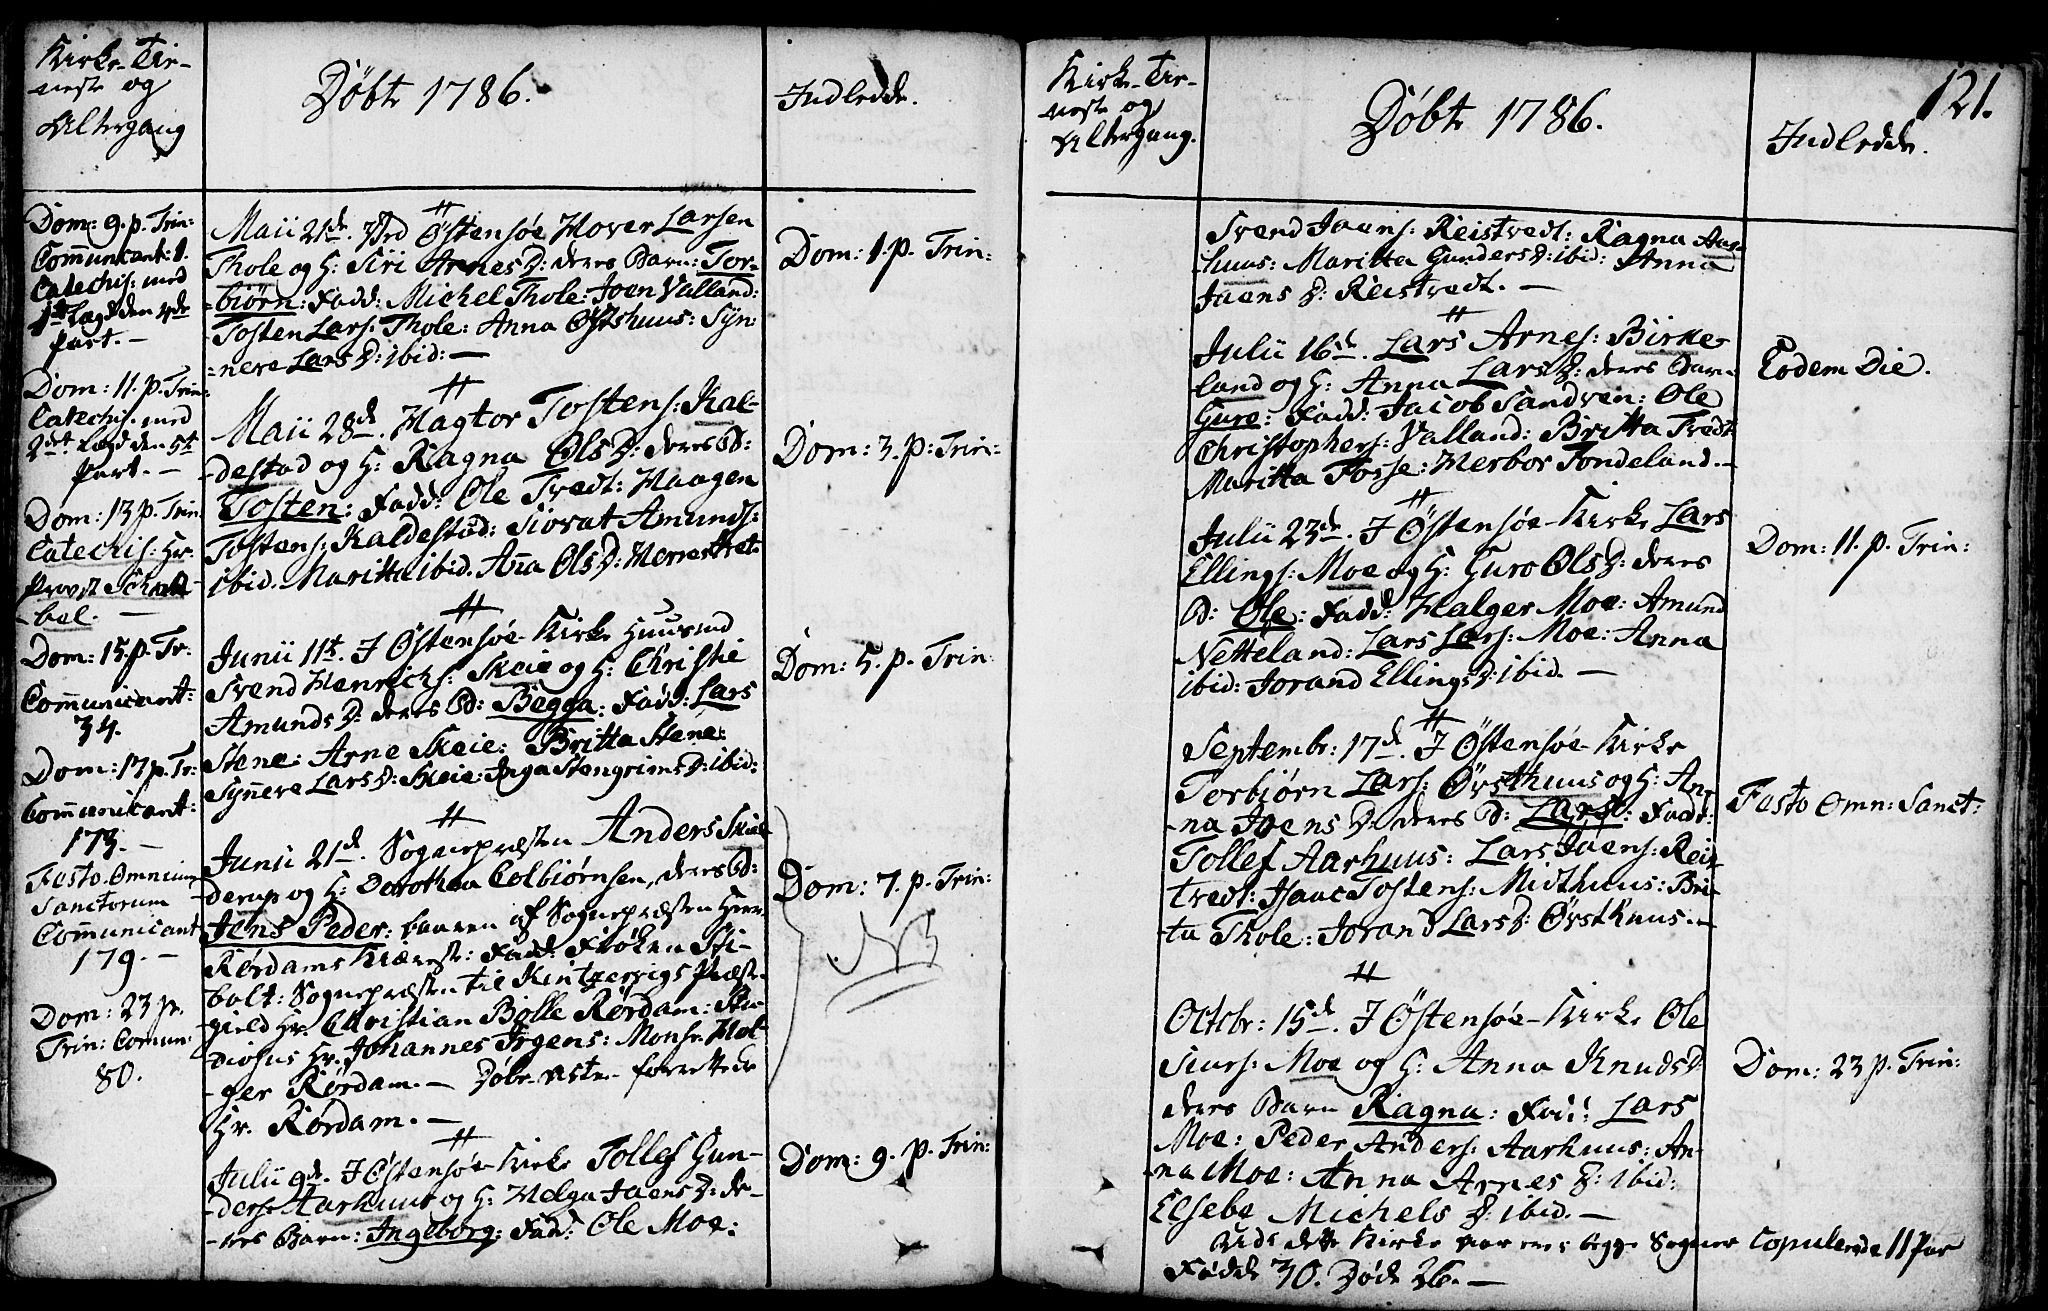 Kirke-Tie-
neste og
Altergang
Døbte 1786.
Indledde.
Dom: 9. p. Trin:
Com̄unicant: 1.
Catechis: med
1ste Lægd den 4de
part. —
Dom: 11. p. Trin:
Catechis. med
2det Lægd den 5te
Part. —
Dom: 13 p. Trin
Catechis: Hr.
Provst Schnel-
bol. —
Dom: 15. p. Tr:
Com̄unicant:
34.
Dom: 17 p. Tr:
Com̄unicant:
173. —
Festo Omnium
Sanctorum
Comunicant
179. —
Dom: 23 p.
Trin: Comun:
80.
Maii 21de. Østensøe Hover Larsen
Thole og H: Siri Arnes D: deres Barn: Tor-
-biørn: Fadd: Michel Thole: Joen Valland:
Tosten Lars: Thole: Anna Østhuus: Syn-
-nere Lars D: ibid: —
Maii 28de. Hagtor Tostens: Kal-
-destad og H: Ragna Ols D: deres B:
Tosten: Fadd: Ole Tvedt: Haagen
Tostens: Kaldestad: Siovat Amunds:
ibid. Maritta ibid. An̄a Ols D:
Junii 11te. I Østensøe Kirke Huusmd
Svend Henrichs: Skeie og H: Christie
Amunds D: deres B: Begga: Fadd: Lars
Stene: Arne Skeie: Britta Stene:
Syn̄eve Lars D: Skeie: Inga Stengrims D: ibid:
Junii 21de. Sognepræsten Anders Skiel-
derup og H: Dorothea Colbiørnsen, deres B:
Jens Peder: baaren af Sognepræsten Herr
Rørdams Kiæreste: Fadd: Frøken Sti-
bolt: Sognepræsten til Kintzervigs Præste-
gield Hr. Christian Bolle Rørdam: Stu-
diosus Hr. Johannes Irgens: Monsr. Hol-
-ger Rørdam. — Døbe- forrettede
Hr. Rørdam. —
Julii 9de. I Østensøe Kirke Tollef Gun-
-ders: Aarhuus og H: Helga Jaens D: de-
-res Barn: Ingeborg: Fad: Ole Moe:
Dom: 1. p. Trin:
Dom: 3. p: Trin:
Dom: 5. p. Trin:
Dom: 7. p. Trin:
NB
Dom: 9. p. Trin:
121.
Kirke-Tie-
neste og
Altergang.
Døbte 1786.
Indledde.
Svend Jaens: Reistvedt: Ragna Aar-
huus: Maritta Gunders D: ibid: Anna
Jaens D: Reistvedt. —
Julii 16de. Lars Arnes: Birke-
-land og H: Anna Lars D: deres Barn
Gure: Fadd: Jacob Sandven: Ole
Christophers: Valland: Britta Tvedt
Maritta Fosse: Herbor Tondeland. —
Julii 23de. I Østensøe-Kirke Lars
Ellings: Moe og H: Guro Ols D: deres
B: Ole: Fadd: Halger Moe: Amund
Netteland: Lars Lars: Moe: Anna
ibid: Jorand Ellings D: ibid. —
Septembr: 17de. I Østensøe Kirke
Torbiørn Lars: Øvsthuus og H: An-
-na Joens D: deres B: Lars: Fadd:
Tollef Aarhuus: Lars Jaens: Reis-
tvedt: Isaac Tostens: Midthuus: Bri-
-ta Thole: Jorand Lars D: Øvsthuus. —
Octobr: 15de. I Østensøe-Kirke Ole
Siurs: Moe og H: Anna Knuds D
deres Barn Ragna: Fad: Lars
Moe: Peder Anders: Aarhuus: An-
-na Moe: Anna Arnes D: ibid:
Elsebe Michels D: ibid. —
Vide dette Kirke Sogner Copulerede 11 Par
Fødde 30. Døde 26. —
Eodem Die.
Dom: 11. p. Trin:
Festo Omn: Sanct:
Dom: 23 p. Trin: